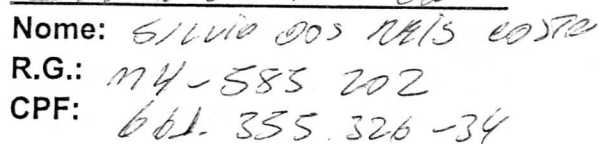 Nome: Silvio dos Reis Costa
R.G.: M4-585 202
CPF: 661. 355. 326-34